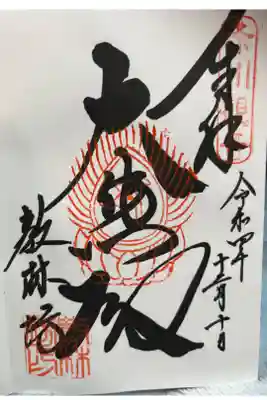 奉拝
令和四年十一月十日
大悲殿
教林坊